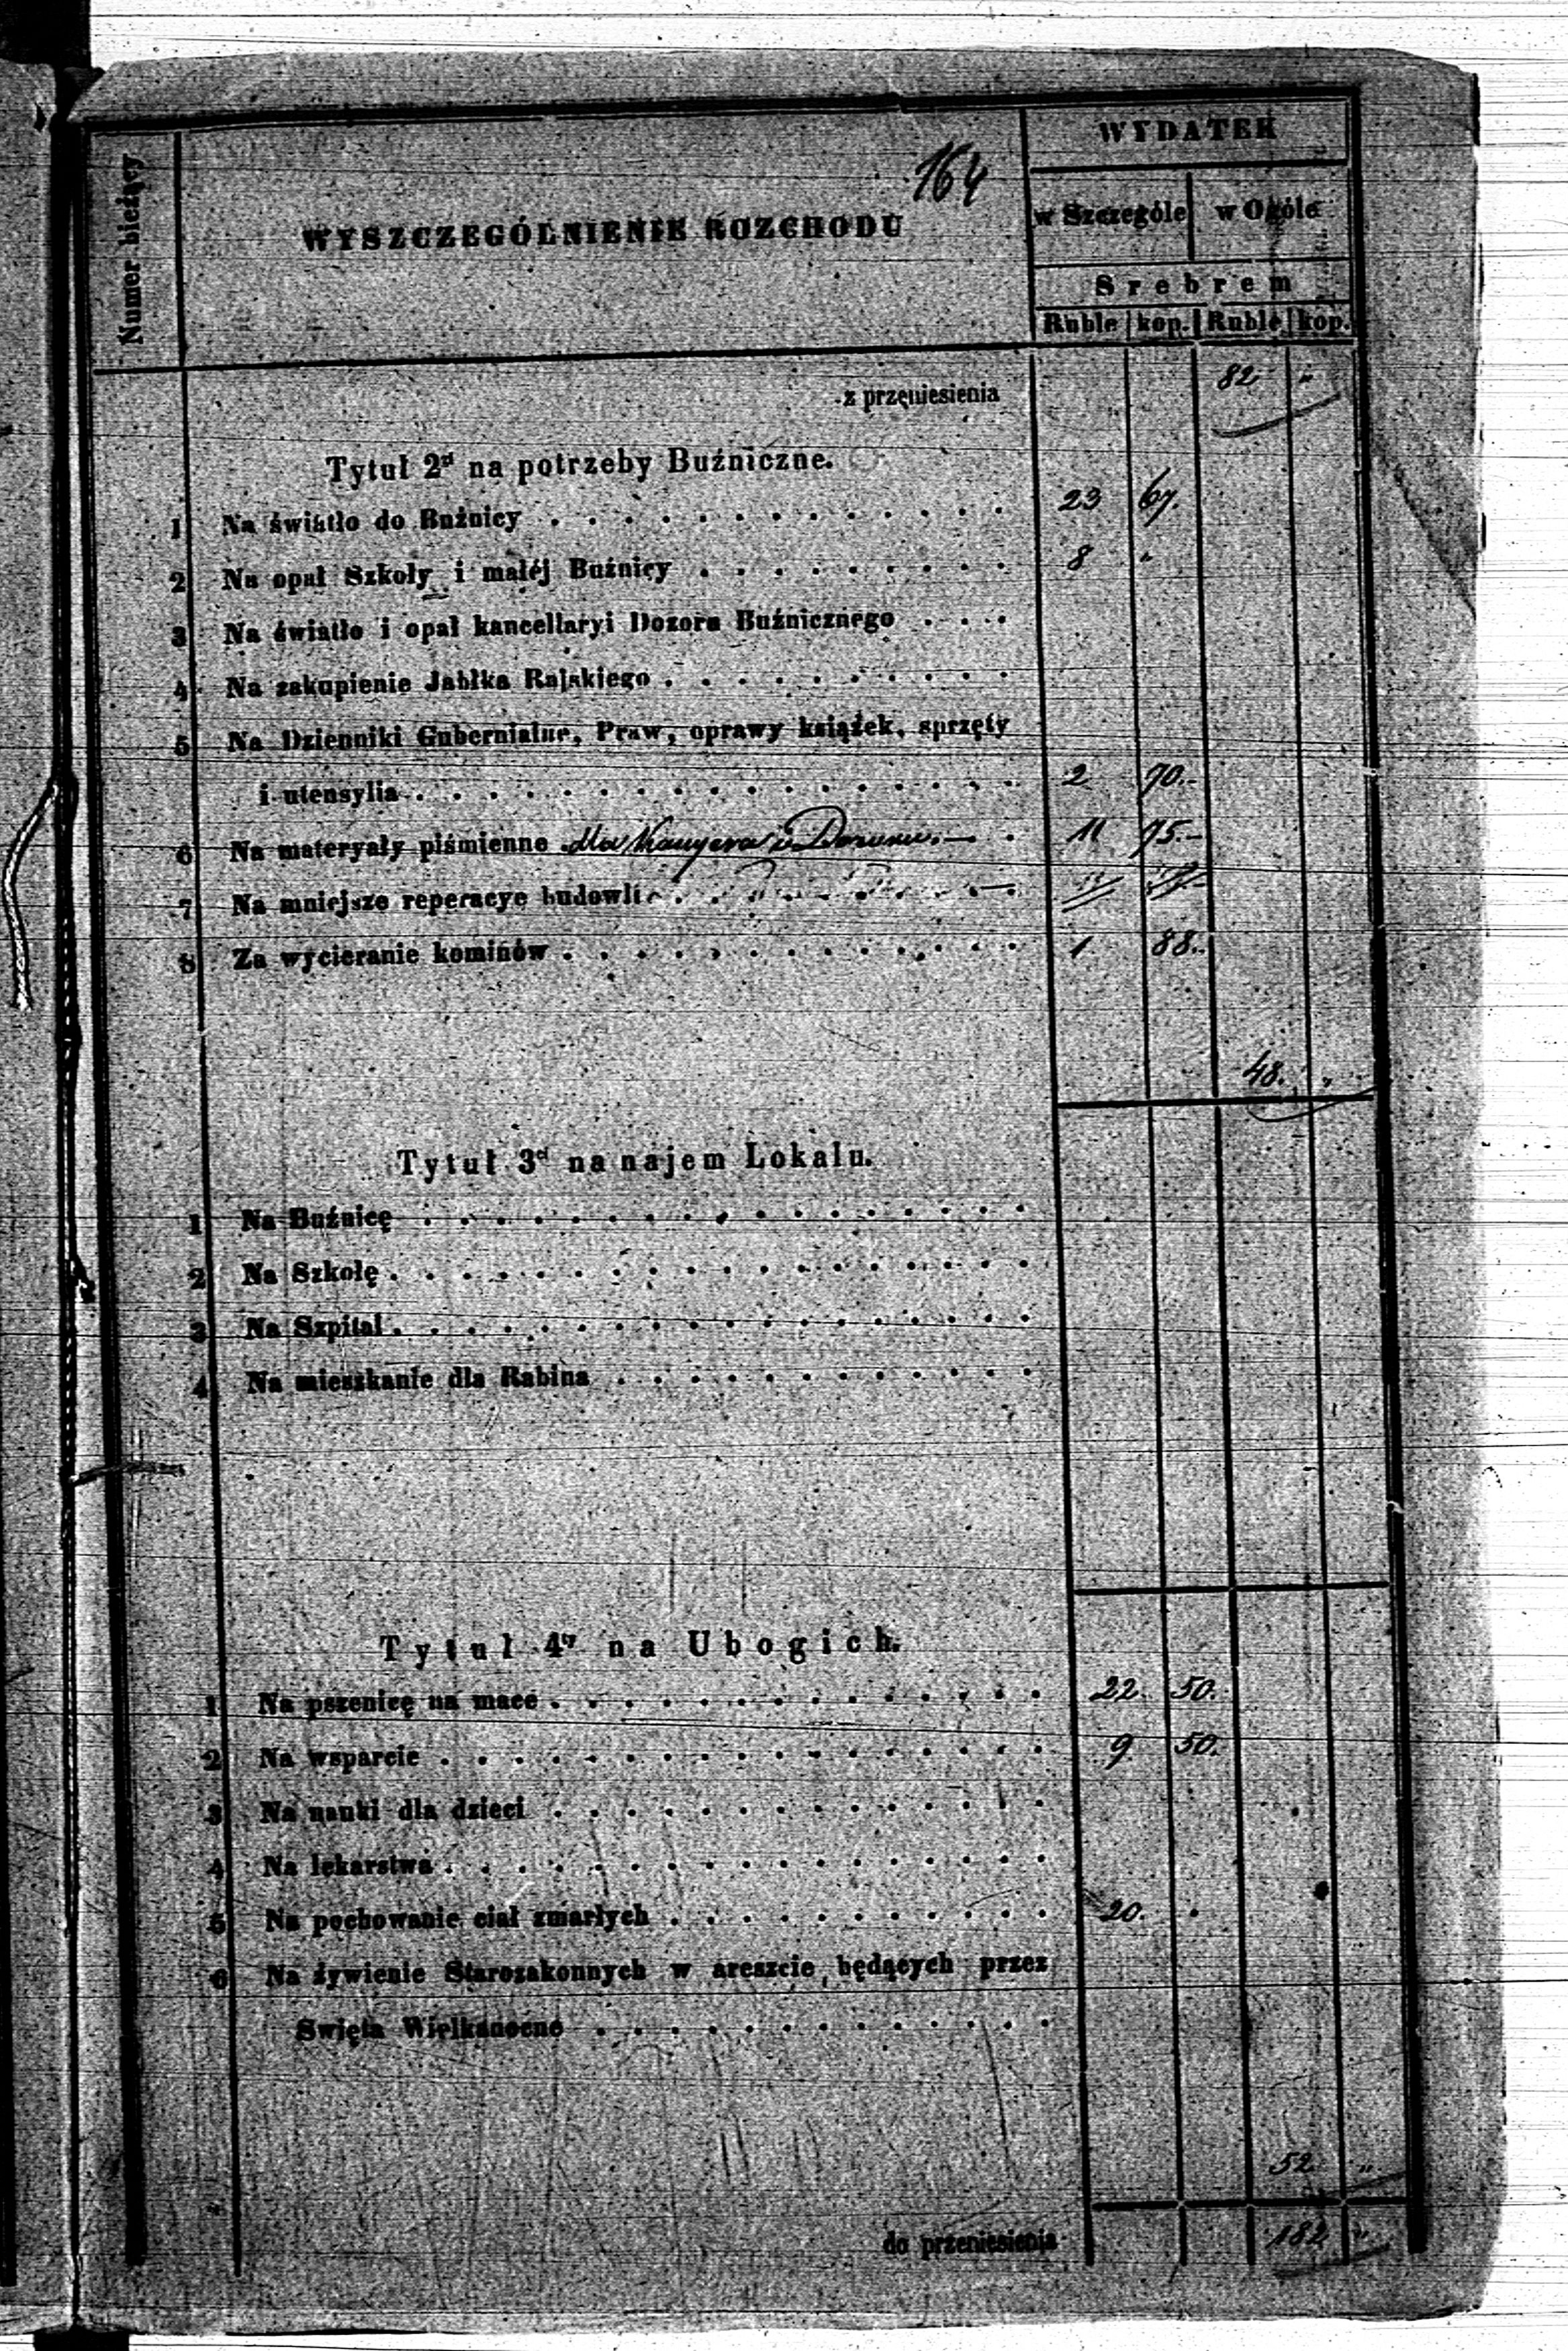 164
WYDATEK
Numer bieżący
WYSZCZEGÓLNIENIE ROZCHODU
w Szczególe w Ogóle
Srebrem
Ruble kop. Ruble kop.
z przeniesienia 82 "
Tytuł 2gi na potrzeby Buźniczne.
1 Na światło do Buźnicy 23 67.
2 Na opał Szkoły i małéj Buźnicy 8 "
3 Na światło i opał kancellaryi Dozoru Buźnicznego
4 Na zakupienie Jabłka Rajskiego
5 Na Dzienniki Gubernialne, Praw, oprawy książek, sprzęty
i utensylia 2 70.-
6 Na materyały piśmienne dla Kassyera i Dozoru. 11 75.-
7 Na mniejsze reperacye budowli
8 Za wycieranie kominów 1 88.
48. "
Tytuł 3ci na najem Lokalu.
1 Na Buźnicę
2 Na Szkołę
3 Na Szpital
4 Na mieszkanie dla Rabina
Tytuł 4ty na Ubogich.
1 Na pszenicę na mace 22. 50.
2 Na wsparcie 9 50.
3 Na nauki dla dzieci
4 Na lekarstwa
5 Na pochowanie ciał zmarłych 20.
6 Na żywienie Starozakonnych w areszcie będących przez
Swięta Wielkanocne
52 "
do przeniesienia 182 "